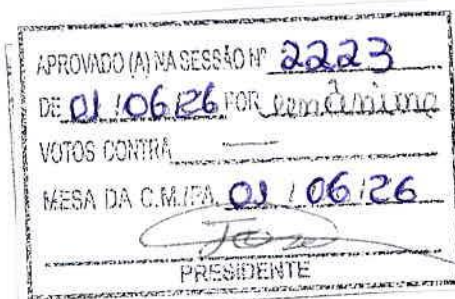 APROVADO (A) NA SESSÃO Nº 2223
DE 01 / 06 / 26 POR unânime
VOTOS CONTRA
MESA DA C.M./PA. 01 / 06 / 26
PRESIDENTE